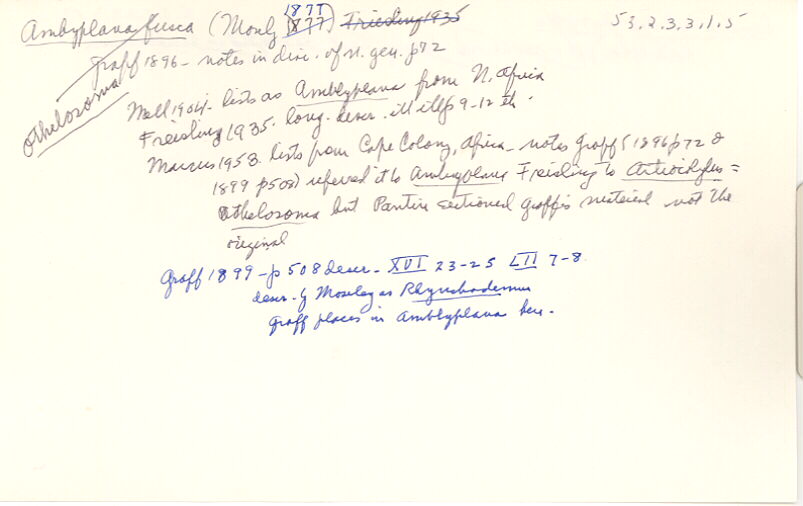 1877
Amblyplana fusca (Mosely 1877) Friesling 1935
53.2.3.3.1.5
Graff 1896 - notes in disc. of n. gen. p72
Othelosoma
Mell 1904 - lists as Amblyplana from N. Africa
Freisling 1935 - long. descr. ill p 9-12
Marcus 1953 lists from Cape Colony, Africa - notes Graff (1896 p72 &
1899 p508) referred it to Amblyplana Freisling to Artiocotylus =
Othelosoma but Pantin sectioned Graff's material not the
original
Graff 1899 - p 508 descr. - XVI 23-25 LII 7-8
descr. by Moseley as Rhynchodemus
Graff places in Amblyplana here.